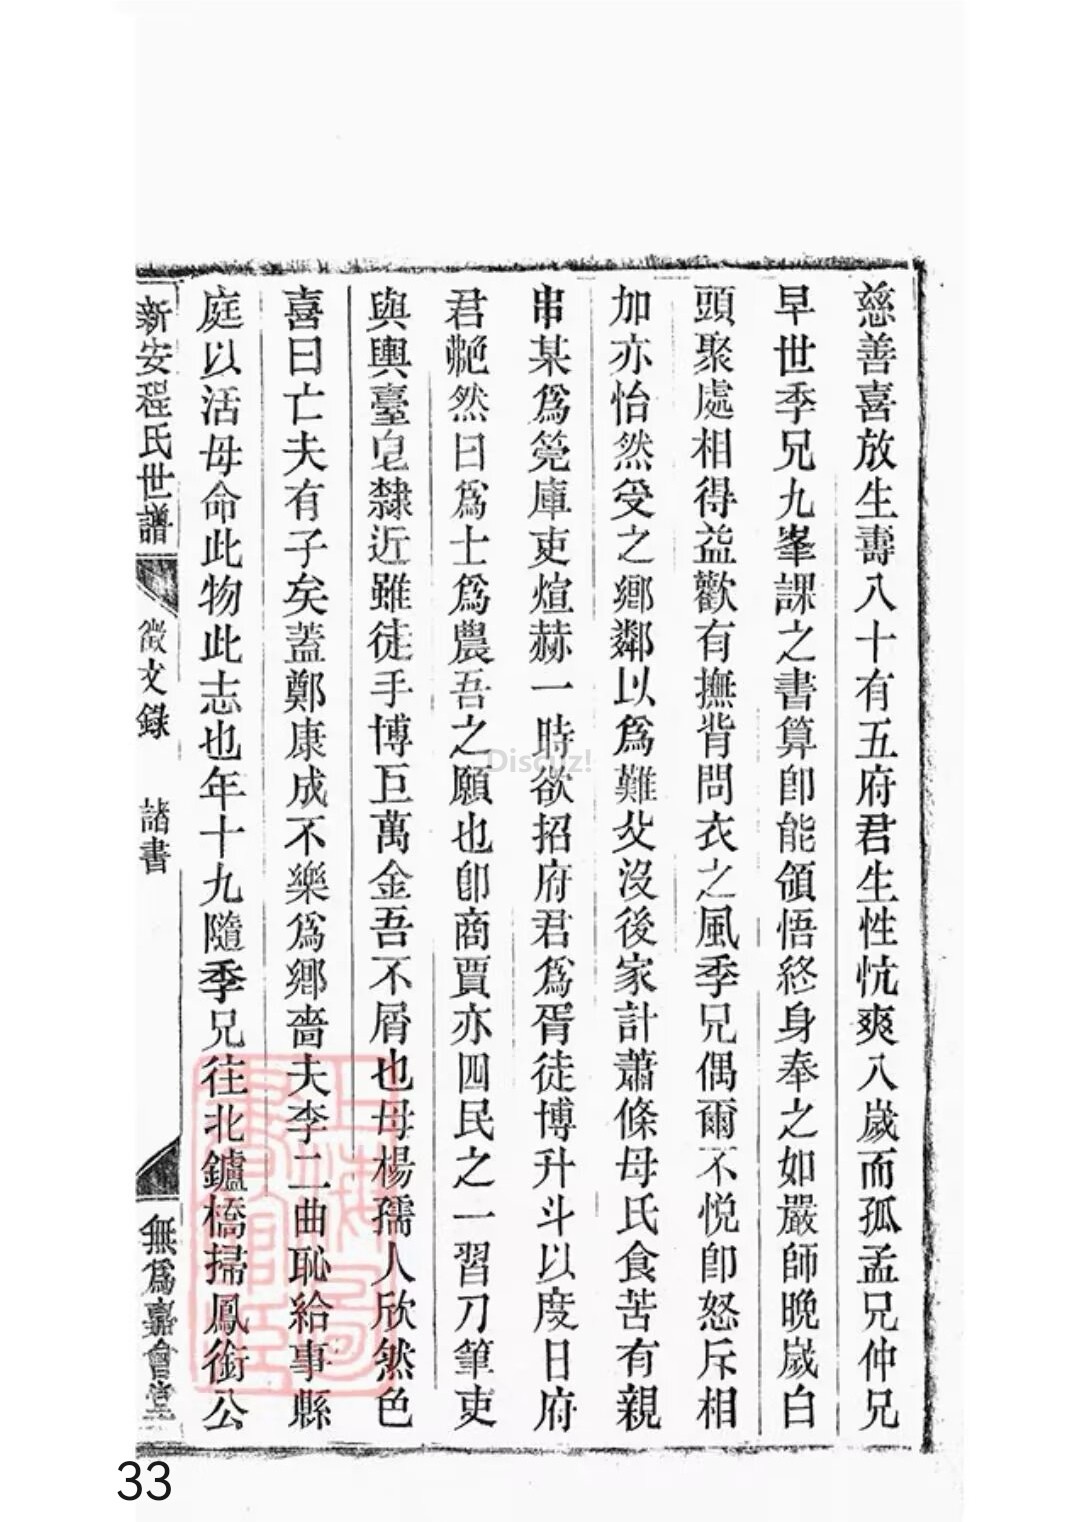 慈善喜放生壽八十有五府君生性忼爽八歲而孤孟兄仲兄
早世季兄九峯課之書算卽能領悟終身奉之如嚴師晩歲白
頭聚處相得益歡有撫背問衣之風季兄偶爾不悅卽怒斥相
加亦怡然受之鄉鄰以爲難父沒後家計蕭條母氏食苦有親
串某爲筦庫吏煊赫一時欲招府君爲胥徒博升斗以度日府
君艴然曰爲士爲農吾之願也卽商賈亦四民之一習刀筆吏
與輿臺皂隸近雖徒手博巨萬金吾不屑也母楊孺人欣然色
喜曰亡夫有子矣蓋鄭康成不樂爲鄉嗇夫李二曲恥給事縣
庭以活母命此物此志也年十九隨季兄往北鑪橋掃鳳銜公
新安程氏世譜 徵文錄 諸書 無爲嘉會堂
上海圖書館藏
Discuz!
33